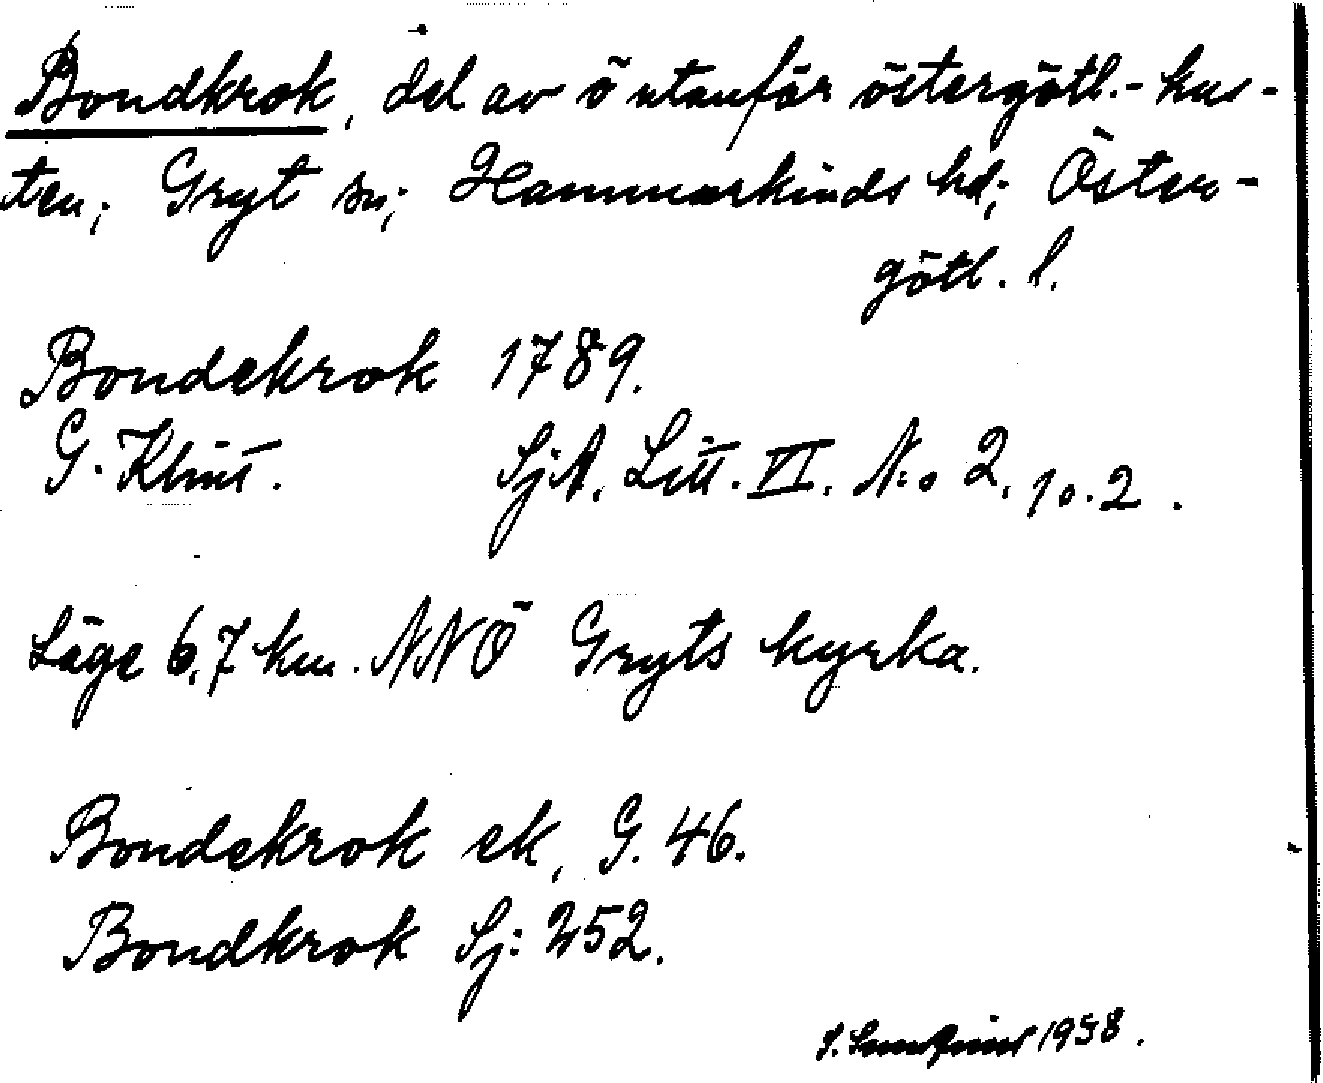 Bondkrok, del av ö utanför östergötl.-kus-
ten; Gryt sn; Hammarkinds hd; Öster-
götl. l.
Bondekrok 1789.
G. Klint. SjA. Litt. VI. N:o 2. 10. 2.
Läge 6,7 km. NNÖ Gryts kyrka.
Bondekrok ek, G. 46.
Bondkrok Sj: 252.
1958.